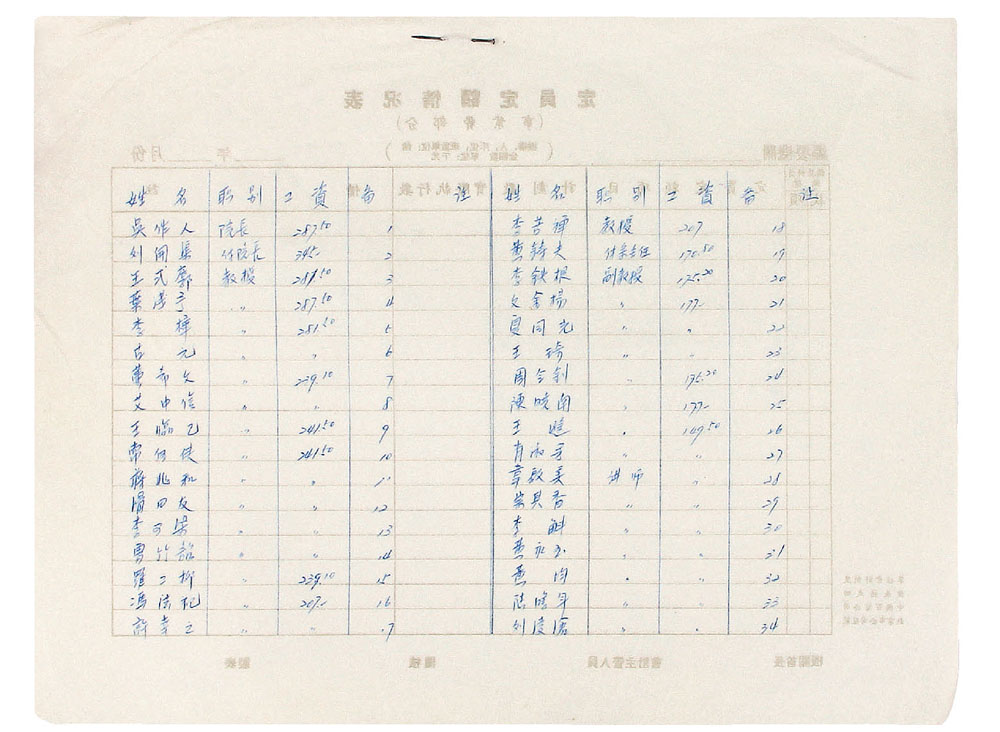 姓名 职别 工資 备註 姓名 职别 工資 备註
吳作人 院長 287.50 1 李苦禅 教授 207 18
刘開渠 付院長 345- 2 黄铸夫 付系主任 176.80 19
王式廓 教授 287.50 3 李鉄根 副教授 175.20 20
葉浅予 〃 287.50 4 文金揚 〃 177- 21
李樺 〃 281.50 5 夏同光 〃 〃 22
古元 〃 〃 6 王琦 〃 〃 23
董希文 〃 239.10 7 周令釗 〃 175.20 24
艾中信 〃 〃 8 陳曉南 〃 177- 25
王臨乙 〃 241.50 9 王曦 〃 149.50 26
常任侠 〃 241.50 10 肖淑芳 〃 27
蒋兆和 〃 〃 11 韋啟美 讲师 〃 28
滑田友 〃 〃 12 宗其香 〃 〃 29
李可染 〃 〃 13 李斛 〃 〃 30
曾竹韶 〃 〃 14 黄永玉 〃 31
羅工柳 〃 239.10 15 黄均 〃 〃 32
馮法祀 〃 207- 16 陆鴻年 〃 〃 33
許幸之 〃 〃 17 刘凌滄 〃 〃 34
定員定額情况表
(事業費部分)
年 月份
製表 覆核 會計主管人員 機關首長